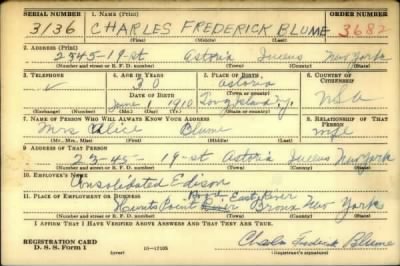 SERIAL NUMBER 1. NAME (Print) ORDER NUMBER
3136 CHARLES FREDERICK BLUME 3682
(First) (Middle) (Last)
2. ADDRESS (Print)
2345-19-st Astoria Queens New York
(Number and street or R. F. D. number) (Town) (County) (State)
3. TELEPHONE 4. AGE IN YEARS 5. PLACE OF BIRTH 6. COUNTRY OF CITIZENSHIP
30 Astoria
DATE OF BIRTH (Town or county)
June 1 1910 USA
(Exchange) (Number) (Mo.) (Day) (Yr.) (State or country)
7. NAME OF PERSON WHO WILL ALWAYS KNOW YOUR ADDRESS 8. RELATIONSHIP OF THAT PERSON
Mrs Alice Blume wife
(Mr., Mrs., Miss) (First) (Middle) (Last)
9. ADDRESS OF THAT PERSON
23-45- 19-st Astoria Queens New York
(Number and street or R. F. D. number) (Town) (County) (State)
10. EMPLOYER'S NAME
Consolidated Edison
11. PLACE OF EMPLOYMENT OR BUSINESS East River
Hunts Point Bronx New York
(Number and street or R. F. D. number) (Town) (County) (State)
I AFFIRM THAT I HAVE VERIFIED ABOVE ANSWERS AND THAT THEY ARE TRUE.
REGISTRATION CARD
D. S. S. Form 1 16-17105 Charles Frederick Blume
(over) (Registrant's signature)